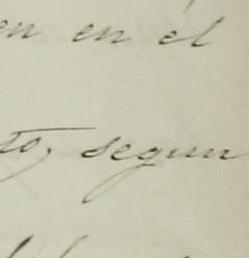 en en él
to, segun